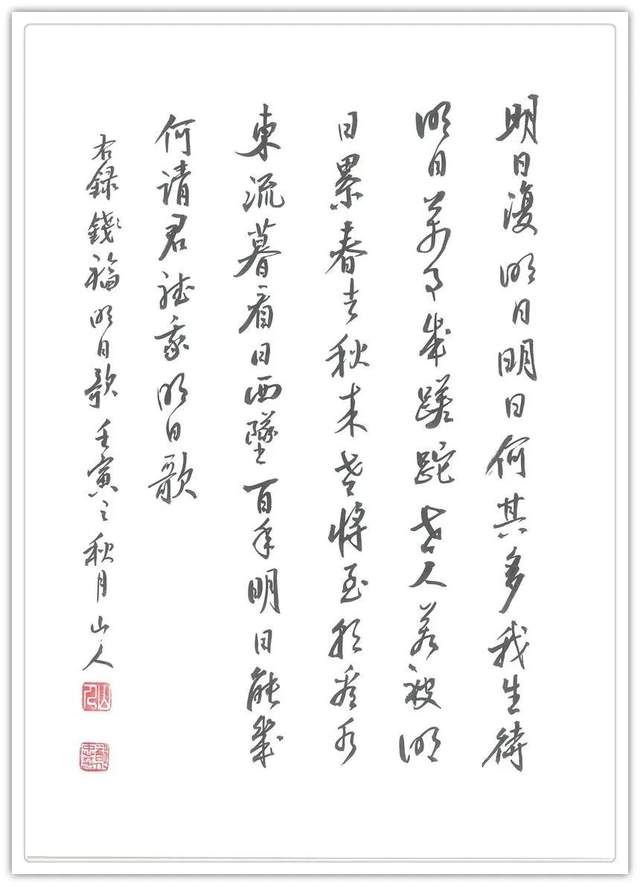 明日復明日明日何其多我生待
明日萬事成蹉跎世人若被明
日累春去秋来老將至朝看水
東流暮看日西墜百年明日能幾
何請君聽我明日歌
右録錢福明日歌壬寅之秋月山人